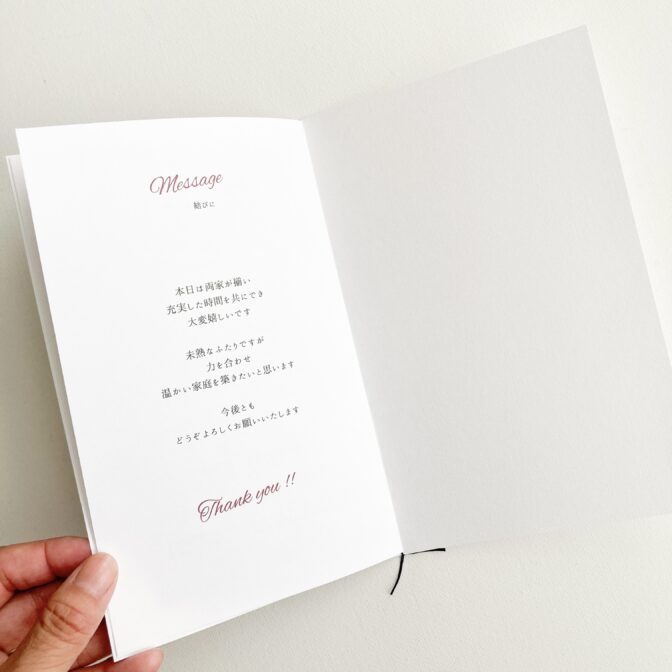 Message
結びに
本日は両家が揃い
充実した時間を共にでき
大変嬉しいです
未熟なふたりですが
力を合わせ
温かい家庭を築きたいと思います
今後とも
どうぞよろしくお願いいたします
Thank you !!